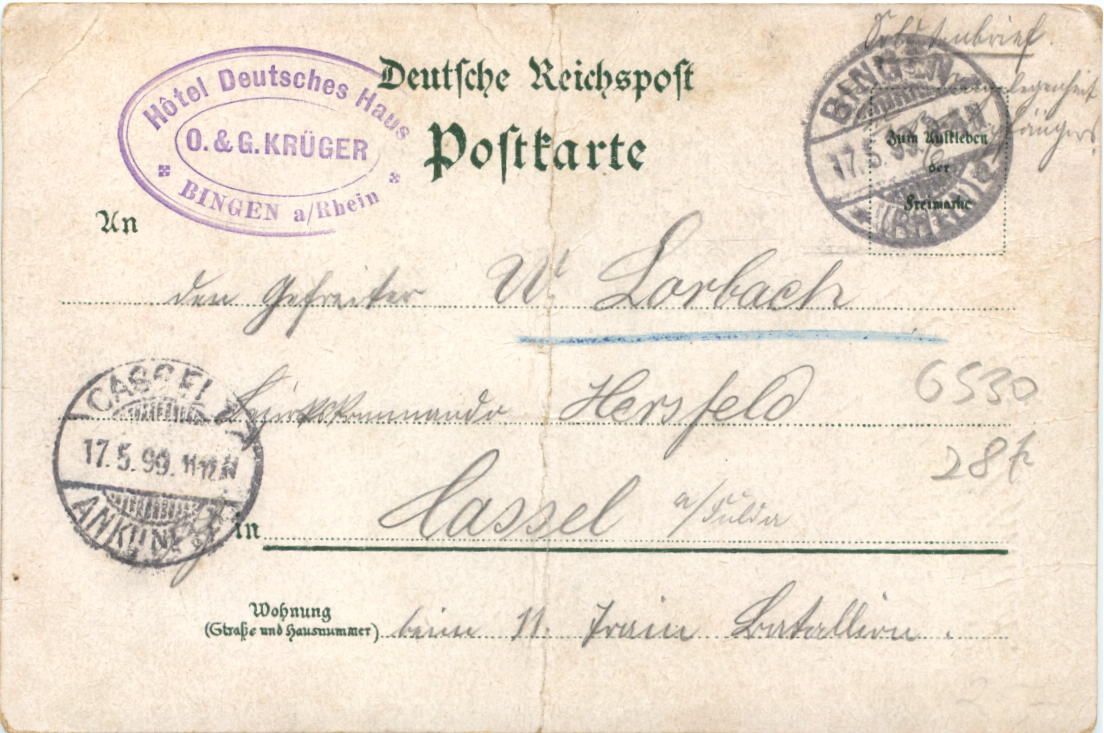 Soldatenbrief.
Deutsche Reichspost
Postkarte
Hôtel Deutsches Haus
O. & G. KRÜGER
BINGEN a/Rhein
BINGEN
17.5.99.
(RHEIN)
Zum Aufkleben
der
Freimarke
An
den Gefreiter W. Lorbach
6530
Bezirkskommando Hersfeld
28
CASSEL
17.5.99. 11-12 N
ANKUNFT
in Cassel a/Fulda
Wohnung
(Straße und Hausnummer)
beim 11. Train Batallion.